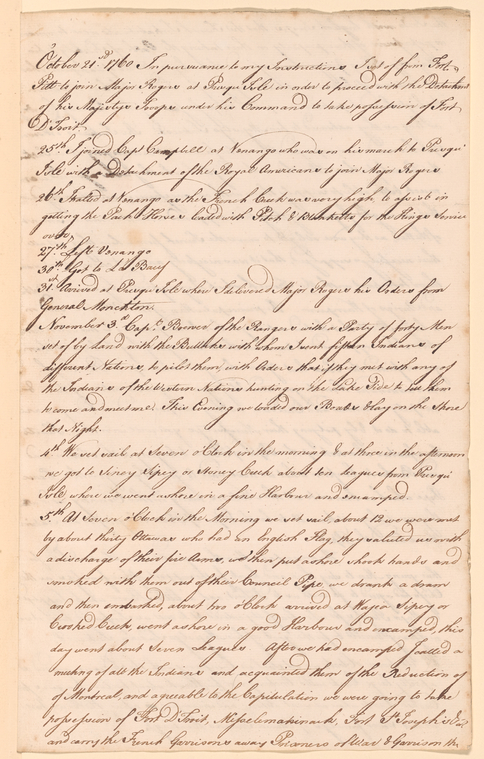 October 21.st 1760 In pursuance to my Instructions I set of from Fort
Pitt to join Major Rogers at Presqu' Isle in order to proceed with the Detachmt
of his Majestys Troops under his Command to take possession of Fort
D'Troit.
25th. I joined Capt Campbell at Venango who was on his march to Presqu'
Isle with a Detachment of the Royal Americans to join Major Rogers
26th. I halted at Venango as the French Creek was very high, to assist in
getting the Pack Horses loaded with Pitch & Blanketts for the Kings Service
over.
27th. Left Venango
30th. Got to La Bauf
31st. Arived at Presqu' Isle where I delivered Major Rogers his Orders from
General Monckton.
November 3.d Capt. Brewer of the Rangers with a Party of forty Men
set of by Land with the Bullocks with whom I sent fifteen Indians of
different Nations, to pilot them, with Orders that if they met with any of
the Indians of the Western Nations hunting on the Lake Side to tell them
to come and meet me. This Evening we loaded our Boats & lay on the Shore
that Night.
4th. We set sail at Seven o'Clock in the morning & at three in the afternoon
we got to Siney Sipey or Stoney Creek about ten leagues from Presqu'
Isle where we went ashore in a fine Harbour and encamped.
5th. At Seven o'Clock in the Morning we set sail, about 12 we were met
by about thirty Ottawas who had an English Flag, they saluted us with
a discharge of their fire Arms, we then put ashore shook hands and
smoked with them out of their Council Pipe, we drank a dram
and then embarked, about two o'Clock arrived at Wajea Sipery or
Crooked Creek, went ashore in a good Harbour and encamped, this
day went about Seven Leagues After we had encamped I called a
meeting of all the Indians and acquainted them of the Reduction of
of Montreal, and agreeable to the Capitulation we were going to take
possession of Fort D'Troit, Misselemakinack, Fort St Joseph's &c
and carry the French Garrisons away Prisoners of War & Garrison the